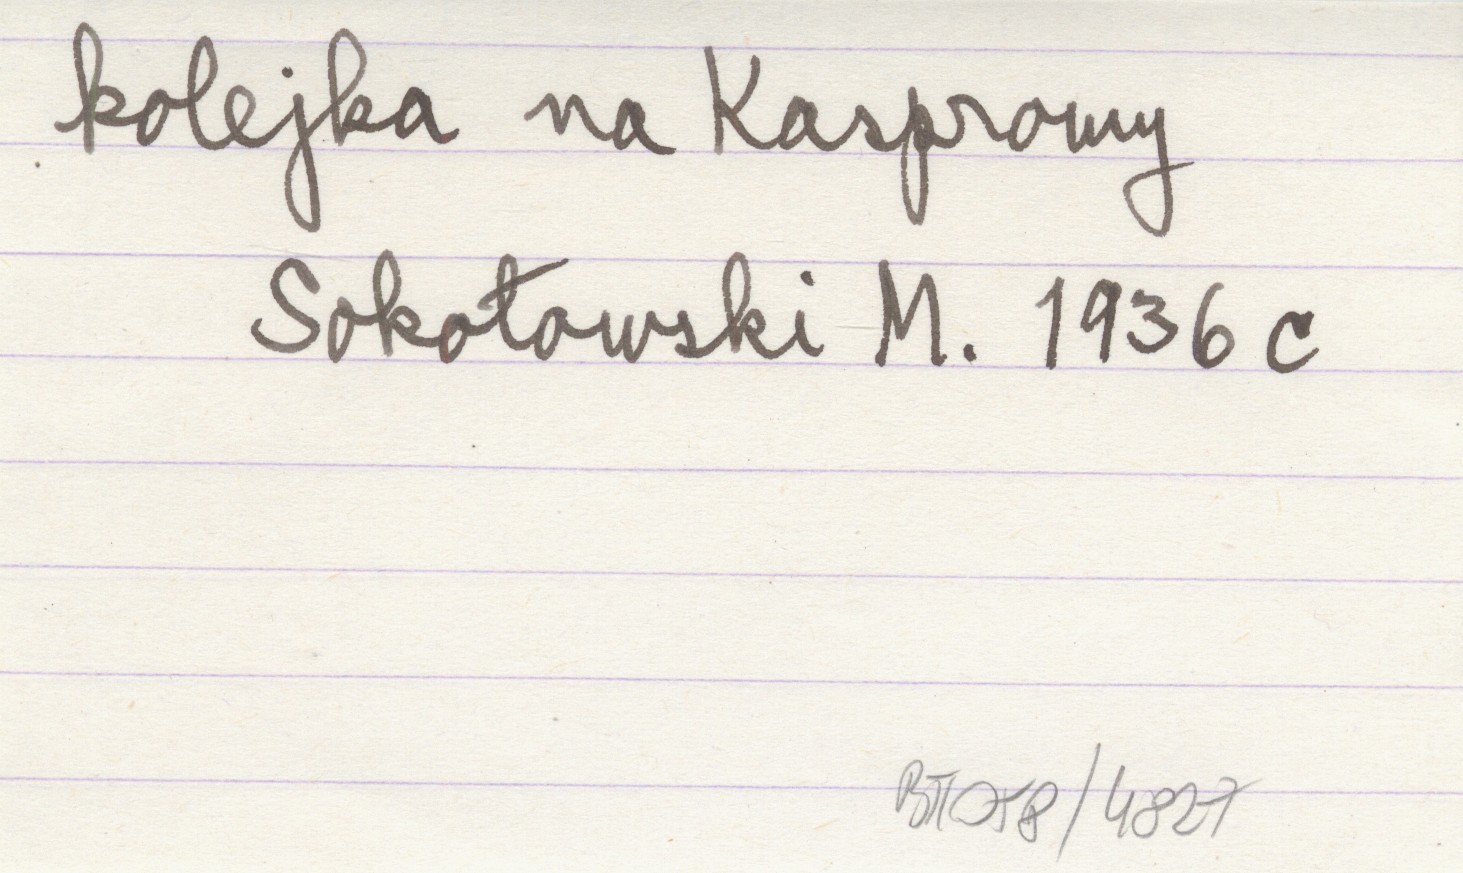 kolejka na Kasprowy
Sokołowski M. 1936 c
/4827